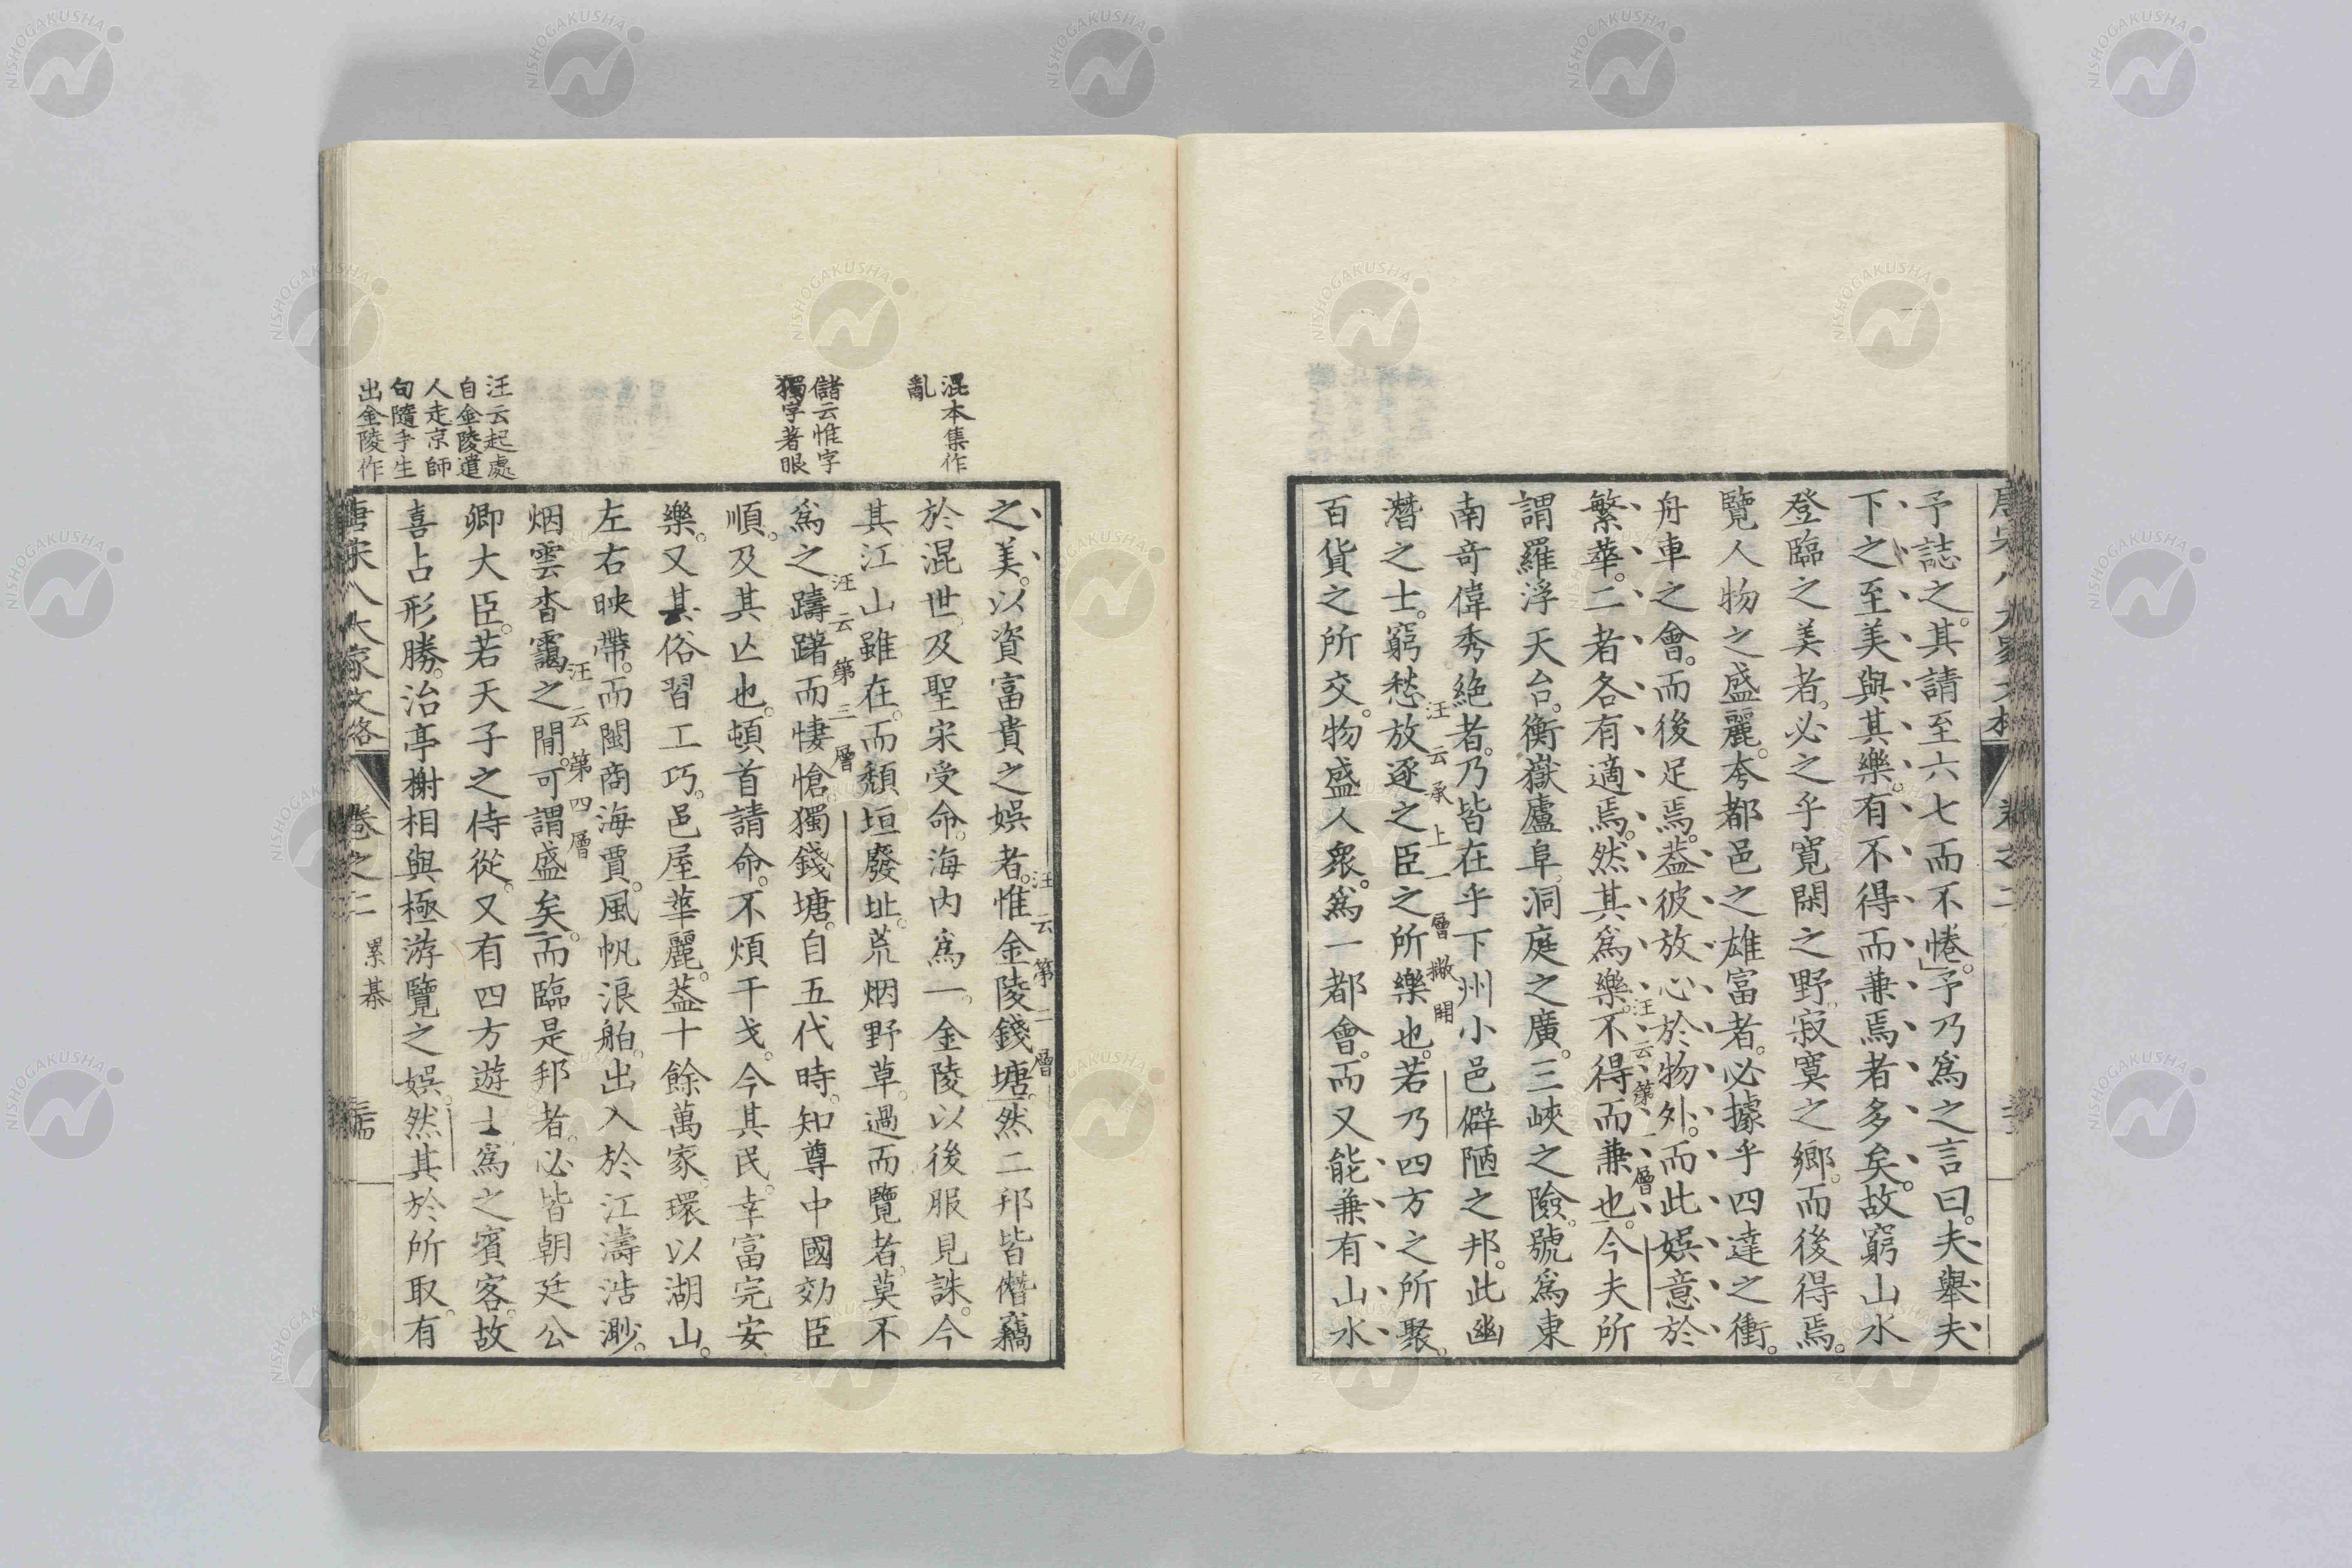 予誌之。其請至六七而不惓。予乃爲之言曰。夫舉夫
下之至美與其樂。有不得而兼焉者多矣。故窮山水
登臨之美者。必之乎寬閑之野。寂寞之鄉。而後得焉。
覽人物之盛麗。夸都邑之雄富者。必據乎四達之衝。
舟車之會。而後足焉。葢彼放心於物外。而此娯意於
繁華。二者各有適焉。然其爲樂。不得而兼也。今夫所
汪云第一層
謂羅浮天台。衡嶽廬阜。洞庭之廣。三峽之險。號爲東
南奇偉秀絶者。乃皆在乎下州小邑僻陋之邦。此幽
潛之士。窮愁放逐之臣之所樂也。若乃四方之所聚。
汪云承上一層撇開
百貨之所交。物盛人衆。爲一都會。而又能兼有山水
混本集作
亂
儲云惟字
獨字著眼
汪云起處
自金陵遣
人走京師
句隨手生
出金陵作
之美。以資富貴之娯者。惟金陵錢塘。然二邦皆僭竊
汪云第二層
於混世。及聖宋受命。海内爲一。金陵以後服見誅。今
其江山雖在。而頽垣廢址。荒烟野草。過而覽者。莫不
爲之躊躇而悽愴。獨錢塘。自五代時。知尊中國効臣
汪云第三層
順。及其亾也。頓首請命。不煩干戈。今其民。幸富完安
樂。又其俗習工巧。邑屋華麗。葢十餘萬家。環以湖山。
左右映帶。而閩商海賈。風帆浪舶。出入於江濤浩渺。
烟雲杳靄之間。可謂盛矣。而臨是邦者。必皆朝廷公
汪云第四層
卿大臣。若天子之侍從。又有四方遊士爲之賓客。故
喜占形勝。治亭榭相與極游覽之娯。然其於所取。有
唐宋八大家文格
卷之二
累棊
NISHOGAKUSHA